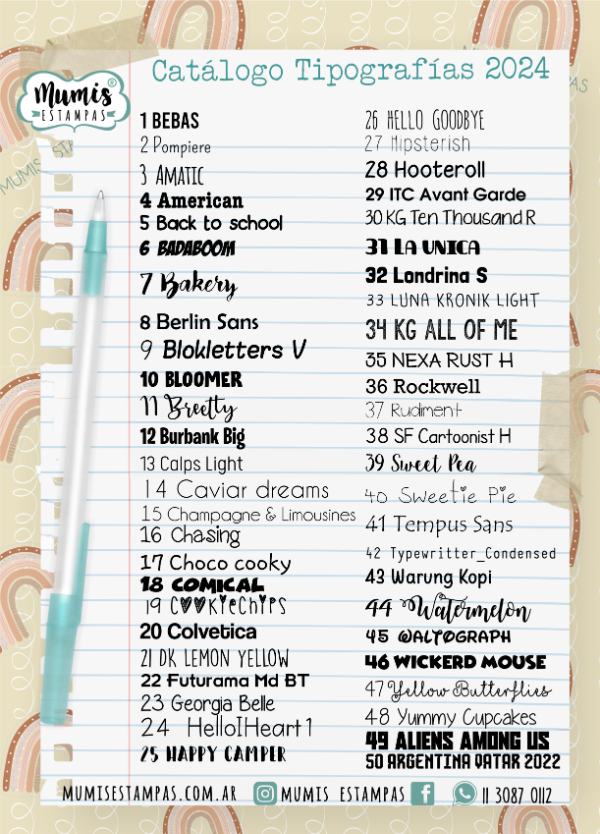 Catálogo Tipografías 2024
Mumis®
ESTAMPAS
1 BEBAS
2 Pompiere
3 AMATIC
4 American
5 Back to school
6 BADABOOM
7 Bakery
8 Berlin Sans
9 Blokletters V
10 BLOOMER
11 Breetty
12 Burbank Big
13 Calps Light
14 Caviar dreams
15 Champagne & Limousines
16 Chasing
17 Choco cooky
18 COMICAL
19 COOKIECHIPS
20 Colvetica
21 DK LEMON YELLOW
22 Futurama Md BT
23 Georgia Belle
24 HelloIHeart1
25 HAPPY CAMPER
26 HELLO GOODBYE
27 Hipsterish
28 Hooteroll
29 ITC Avant Garde
30 KG Ten Thousand R
31 LA UNICA
32 Londrina S
33 LUNA KRONIK LIGHT
34 KG ALL OF ME
35 NEXA RUST H
36 Rockwell
37 Rudiment
38 SF Cartoonist H
39 Sweet Pea
40 Sweetie Pie
41 Tempus Sans
42 Typewritter_Condensed
43 Warung Kopi
44 Watermelon
45 WALTOGRAPH
46 WICKERD MOUSE
47 Yellow Butterflies
48 Yummy Cupcakes
49 ALIENS AMONG US
50 ARGENTINA QATAR 2022
MUMISESTAMPAS.COM.AR
MUMIS_ESTAMPAS
11 3087 0112